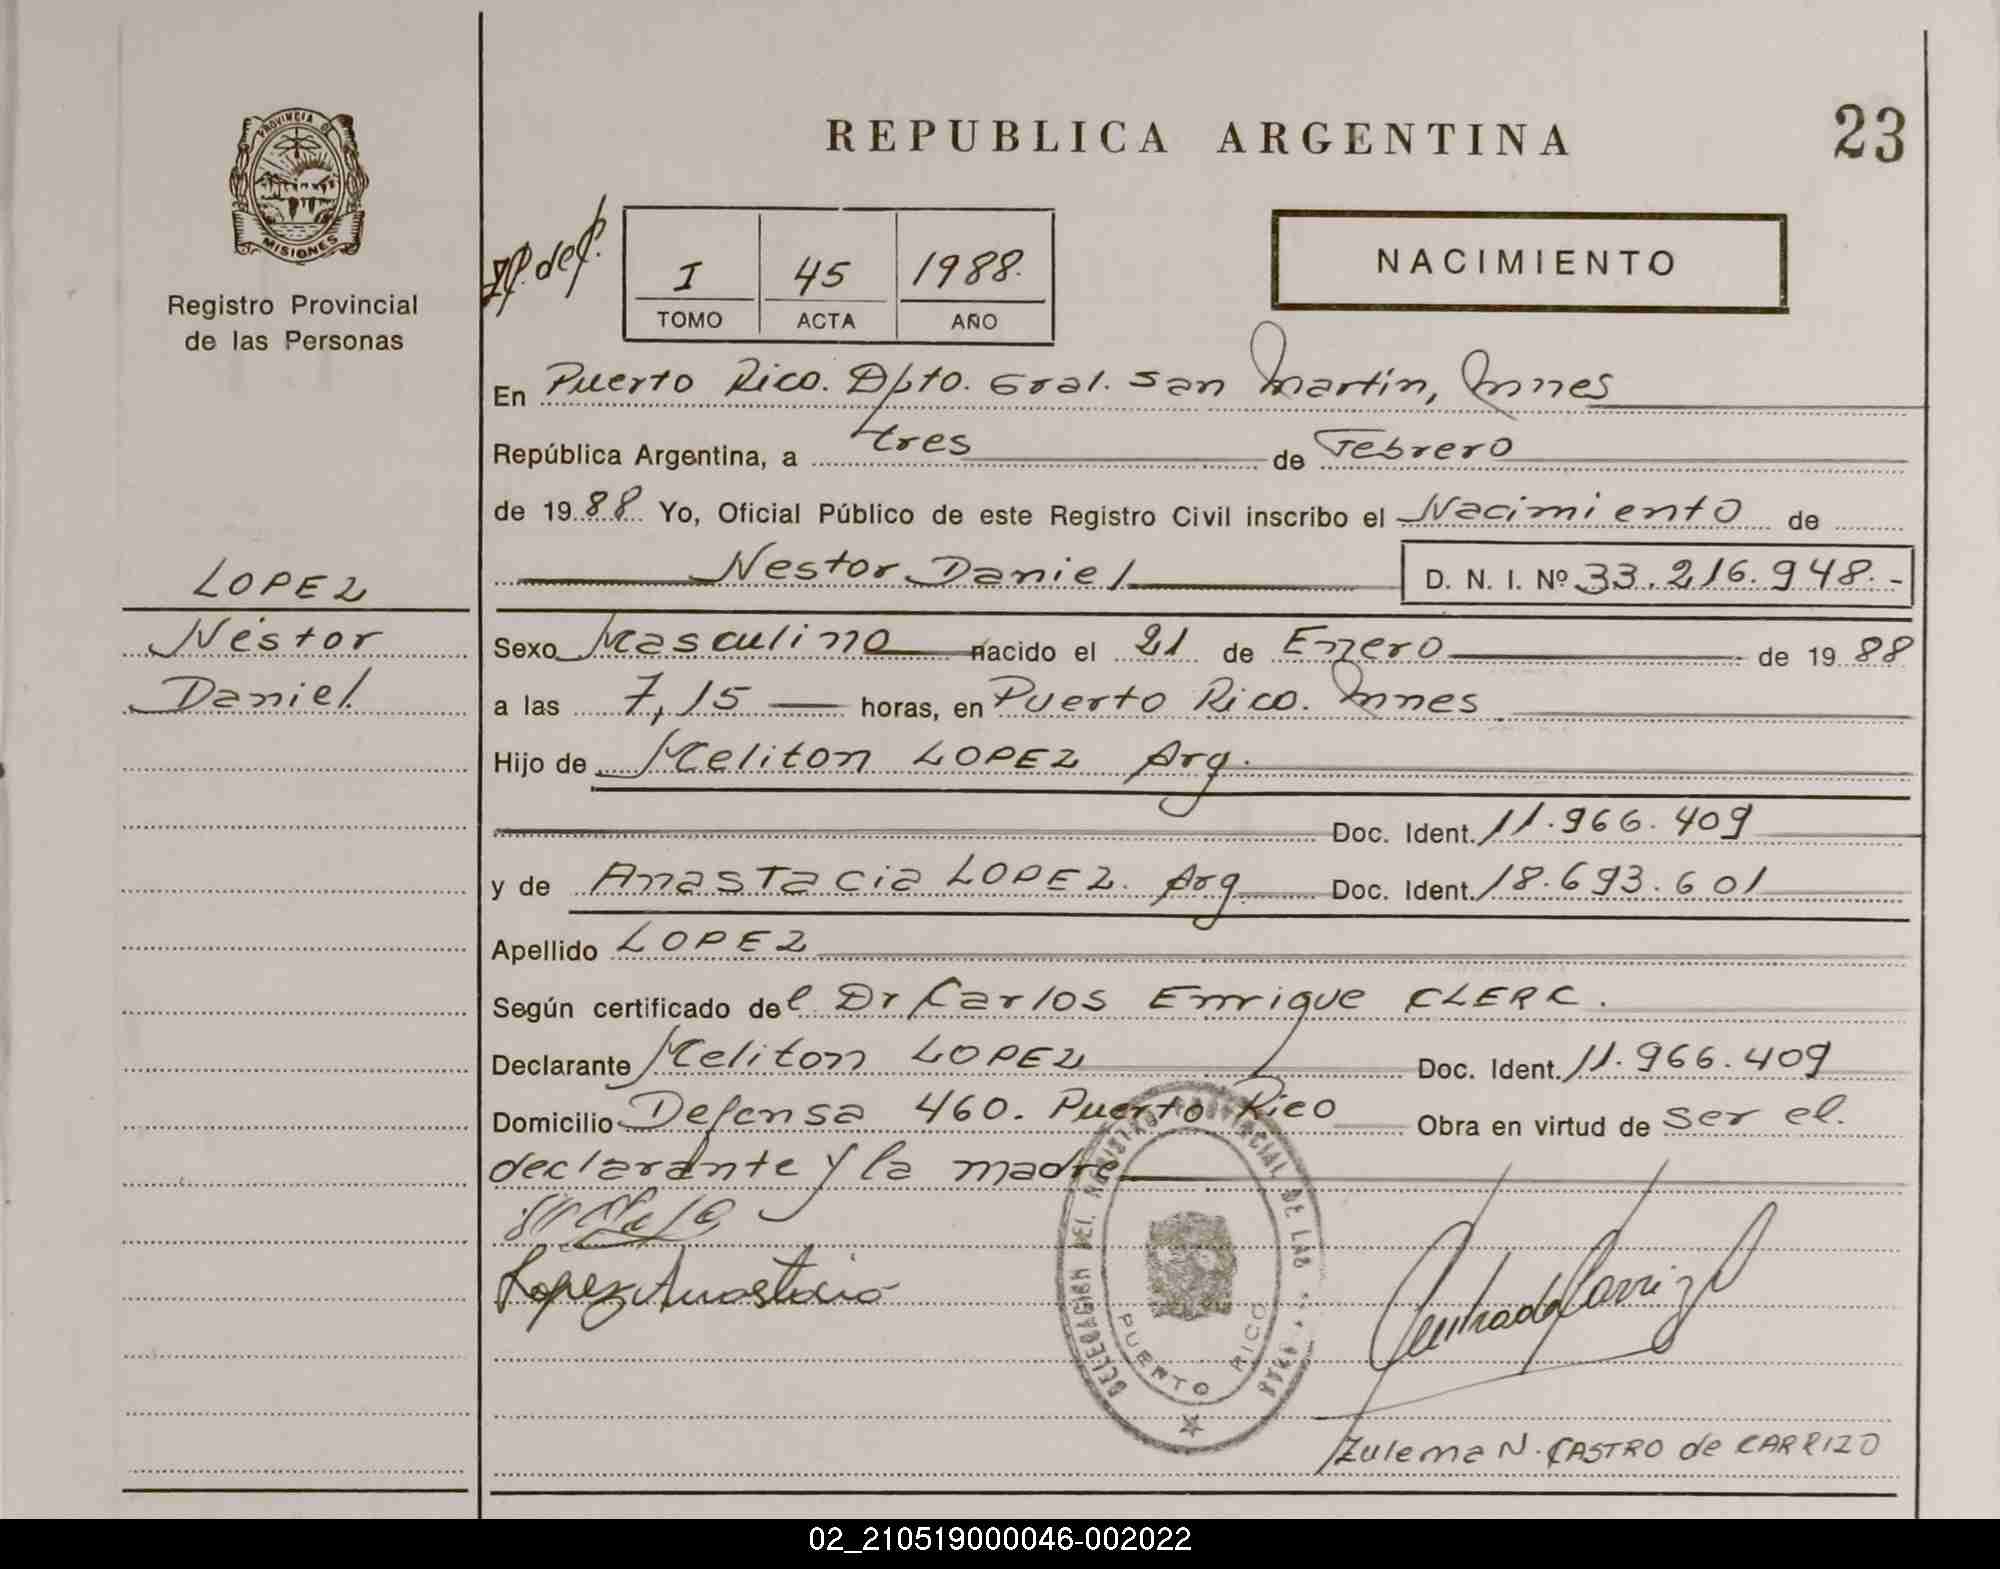 PROVINCIA DE
MISIONES
Registro Provincial
de las Personas
LOPEZ
Néstor
Daniel.
REPUBLICA ARGENTINA
23
I 45 1988.
TOMO ACTA AÑO
NACIMIENTO
En Puerto Rico. Dpto. Gral. San Martín, Mnes
República Argentina, a tres de Febrero
de 1988 Yo, Oficial Público de este Registro Civil inscribo el Nacimiento de
Nestor Daniel D. N. I. Nº 33.216.948.-
Sexo Masculino nacido el 21 de Enero de 1988
a las 7,15 horas, en Puerto Rico. Mnes
Hijo de Meliton LOPEZ Arg.
Doc. Ident. 11.966.409
y de Anastacia LOPEZ. Arg Doc. Ident. 18.693.601
Apellido LOPEZ
Según certificado del Dr Carlos Enrique CLERC.
Declarante Meliton LOPEZ Doc. Ident. 11.966.409
Domicilio Defensa 460. Puerto Rico Obra en virtud de ser el.
declarante y la madre
Lopez Anastacia
DELEGACION DEL REGISTRO PROVINCIAL DE LAS
PUERTO RICO
Zulema N. CASTRO de CARRIZO
02_210519000046-002022